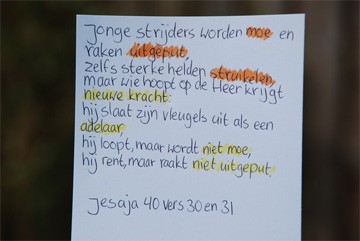 Jonge strijders worden moe en
raken uitgeput,
zelfs sterke helden struikelen,
maar wie hoopt op de Heer krijgt
nieuwe kracht:
hij slaat zijn vleugels uit als een
adelaar,
hij loopt, maar wordt niet moe,
hij rent, maar raakt niet uitgeput.
Jesaja 40 vers 30 en 31